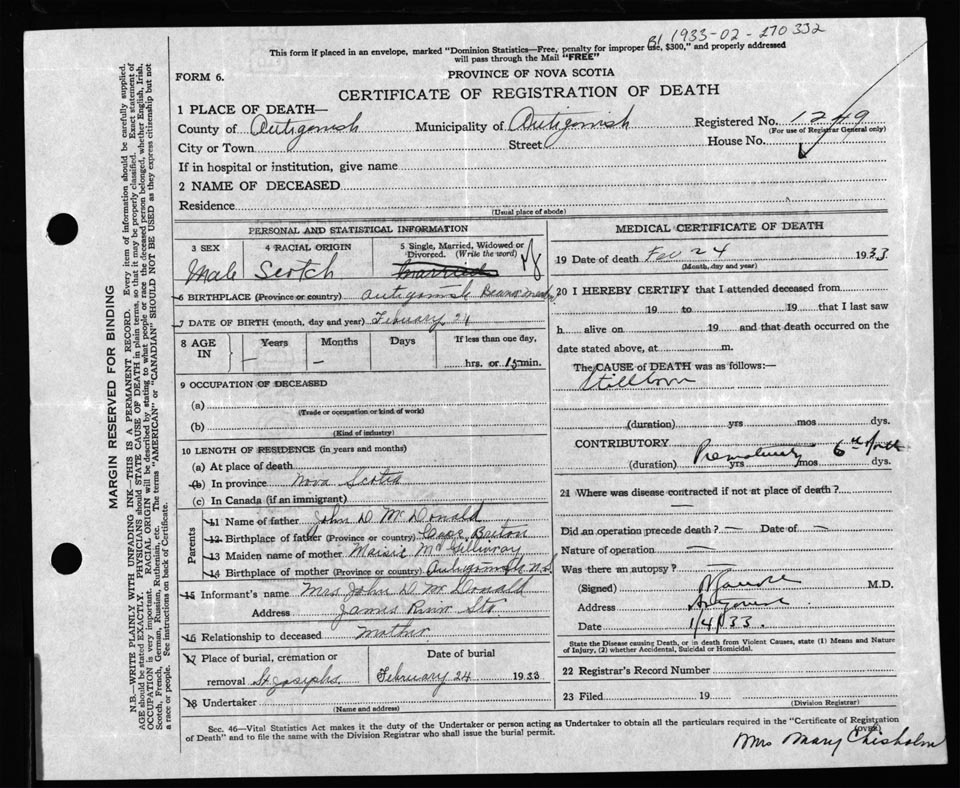 B1 1933-02-270332
This form if placed in an envelope, marked "Dominion Statistics—Free, penalty for improper use, $300," and properly addressed
will pass through the Mail "FREE"
FORM 6.
PROVINCE OF NOVA SCOTIA
CERTIFICATE OF REGISTRATION OF DEATH
1 PLACE OF DEATH—
County of Antigonish Municipality of Antigonish Registered No. 1249
(For use of Registrar General only)
City or Town Street House No.
If in hospital or institution, give name
2 NAME OF DECEASED
Residence
(Usual place of abode)
PERSONAL AND STATISTICAL INFORMATION
3 SEX 4 RACIAL ORIGIN 5 Single, Married, Widowed or Divorced. (Write the word)
Male Scotch Married
6 BIRTHPLACE (Province or country) Antigonish
7 DATE OF BIRTH (month, day and year) February 24
8 AGE IN Years Months Days If less than one day,
— — hrs. or 15 min.
9 OCCUPATION OF DECEASED
(a)
(Trade or occupation or kind of work)
(b)
(Kind of industry)
10 LENGTH OF RESIDENCE (in years and months)
(a) At place of death
(b) In province Nova Scotia
(c) In Canada (if an immigrant)
Parents
11 Name of father John D McDonald
12 Birthplace of father (Province or country) Cape Briton
13 Maiden name of mother Maisie McGillivray
14 Birthplace of mother (Province or country) Antigonish N.S.
15 Informant's name Mrs John D McDonald
Address James River Sta.
16 Relationship to deceased Mother
17 Place of burial, cremation or removal St Josephs Date of burial February 24 1933
18 Undertaker
(Name and address)
MEDICAL CERTIFICATE OF DEATH
19 Date of death Feb 24 1933
(Month, day and year)
20 I HEREBY CERTIFY that I attended deceased from
19 to 19 that I last saw
h alive on 19 and that death occurred on the
date stated above, at m.
The CAUSE of DEATH was as follows:—
Stillborn
(duration) yrs mos dys.
CONTRIBUTORY Prematurity 6th
(duration) yrs mos dys.
21 Where was disease contracted if not at place of death?
—
Did an operation precede death? — Date of —
Nature of operation —
Was there an autopsy? —
(Signed) M.D.
Address Antigonish
Date 1/4/33.
State the Disease causing Death, or in death from Violent Causes, state (1) Means and Nature
of Injury, (2) whether Accidental, Suicidal or Homicidal.
22 Registrar's Record Number
23 Filed 19
(Division Registrar)
Sec. 46—Vital Statistics Act makes it the duty of the Undertaker or person acting as Undertaker to obtain all the particulars required in the "Certificate of Registration
of Death" and to file the same with the Division Registrar who shall issue the burial permit.
(OVER)
Mrs Mary Chisholm
MARGIN RESERVED FOR BINDING
N.B.—WRITE PLAINLY WITH UNFADING INK—THIS IS A PERMANENT RECORD. Every item of information should be carefully supplied.
AGE should be stated EXACTLY. PHYSICIANS should STATE CAUSE OF DEATH in plain terms, so that it may be properly classified. Exact statement of
OCCUPATION is very important. RACIAL ORIGIN will be described by stating to what people or race the deceased person belonged, whether English, Irish,
Scotch, French, German, Russian, Ruthenian, etc. The terms "AMERICAN" or "CANADIAN" SHOULD NOT BE USED as they express citizenship but not
a race or people. See instructions on back of Certificate.